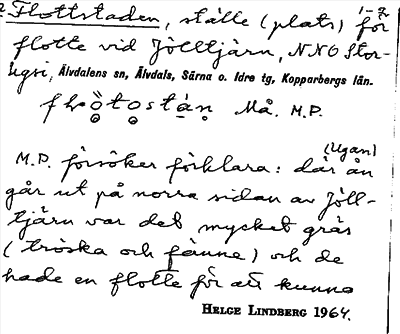 Flottstaden, ställe (plats) för
flotte vid Jölltjärn, NNO Stor-
Ugsi, Älvdalens sn, Älvdals, Särna o. Idre tg, Kopparbergs län.
Må. M.P.
M.P. försöker förklara: där ån (Ugan)
går ut på norra sidan av Jöll-
tjärn var det mycket gräs
(tröska och fänne) och de
hade en flotte för att kunna
HELGE LINDBERG 1964.